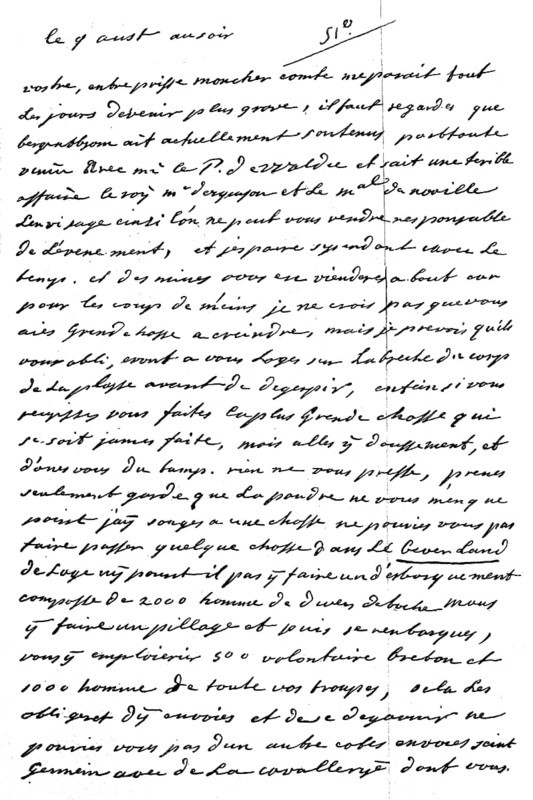 le 9 aust au soir
51e.
vostre, entreprisse moncher comte me parait tout
Les jours devenir plus grave, il faut regarder que
bergopbsom ait actuellement soutenus par toute
venüe Avec mr le P. d et fait une terible
affaire le roÿ mr et Le mal de noaille
Lenvisage einsi L'on ne peut vous rendre responsable
de L'evenement, et jespaire sependant avec Le
temps. et des mines vous en vienderes a bout car
pour les coup de meins je ne crois pas que vous
aies Grende chosse a creindre, mais je prevois quils
vous obli, eront a vous Loger sur La breche du corps
de La plasse avant de degerpir, enfein si vous
reussisses vous faites La plus Grende chosse qui
se soit james faite, mais alles ÿ doussement, et
donés vous du temp. rien ne vous presse, prenes
seulement garde que La poudre ne vous menque
point jaÿ songes a une chosse ne pouries vous pas
faire passer quelque chosse dans Le Beverland
de Lage nÿ pourait il pas ÿ faire un desbarquement
composse de 2000 homme de divers
ÿ faire un pillage et puis se renbarques,
vous ÿ emploieries 500 volontaire breton et
1000 homme de toute vos troupes, sela Les
obligeret dÿ envoies et de se degarnir ne
pouries vous pas dun autre cotes envoies saint
Germein avec de La cavallerÿe dont vous.